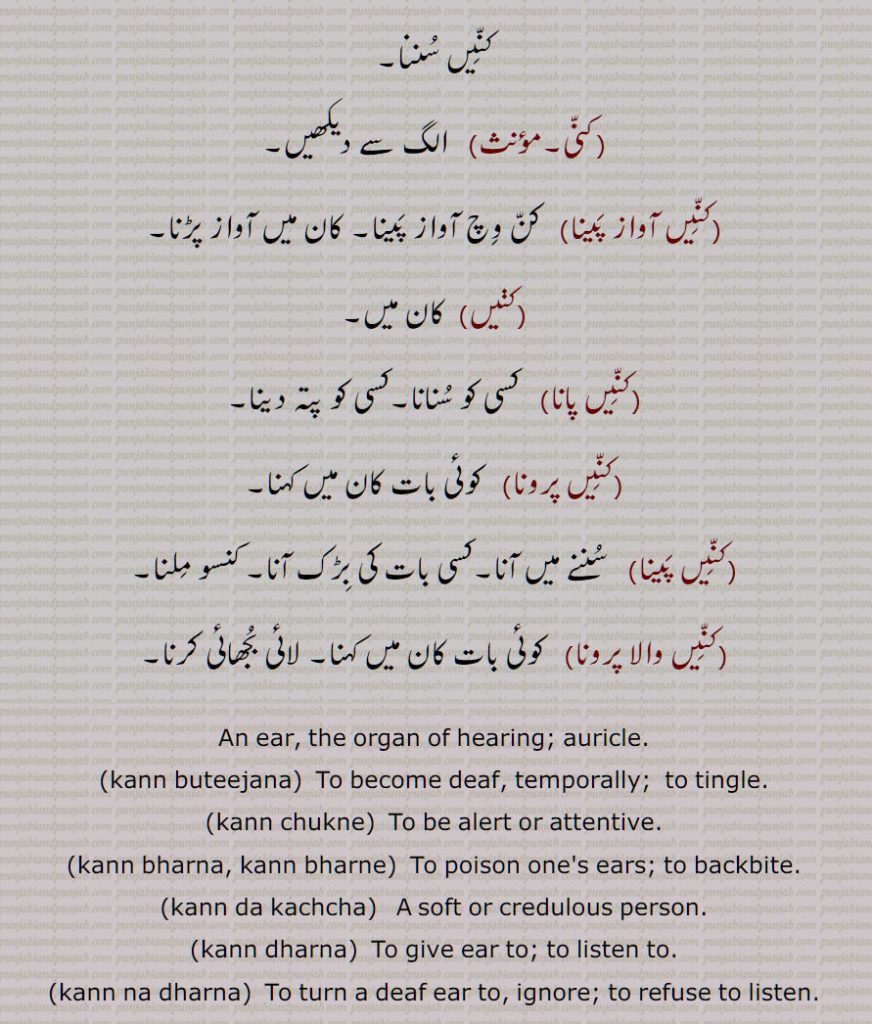 کنِّیں سُننا۔
(کنّی۔مؤنث) الگ سے دیکھیں۔
(کنِّیں آواز پَینا) کنّ وِچ آواز پَینا۔ کان میں آواز پڑنا۔
(کنّیں) کان میں۔
(کنِّیں پانا) کسی کو سُنانا۔کسی کو پتہ دینا۔
(کنِّیں پرونا) کوئی بات کان میں کہنا۔
(کنِّیں پَینا) سُننے میں آنا۔کسی بات کی بِڑک آنا۔ کنسو مِلنا۔
(کنِّیں والا پرونا) کوئی بات کان میں کہنا۔ لائی بُجھائی کرنا۔
An ear, the organ of hearing; auricle.
(kann buteejana) To become deaf, temporally; to tingle.
(kann chukne) To be alert or attentive.
(kann bharna, kann bharne) To poison one's ears; to backbite.
(kann da kachcha) A soft or credulous person.
(kann dharna) To give ear to; to listen to.
(kann na dharna) To turn a deaf ear to, ignore; to refuse to listen.